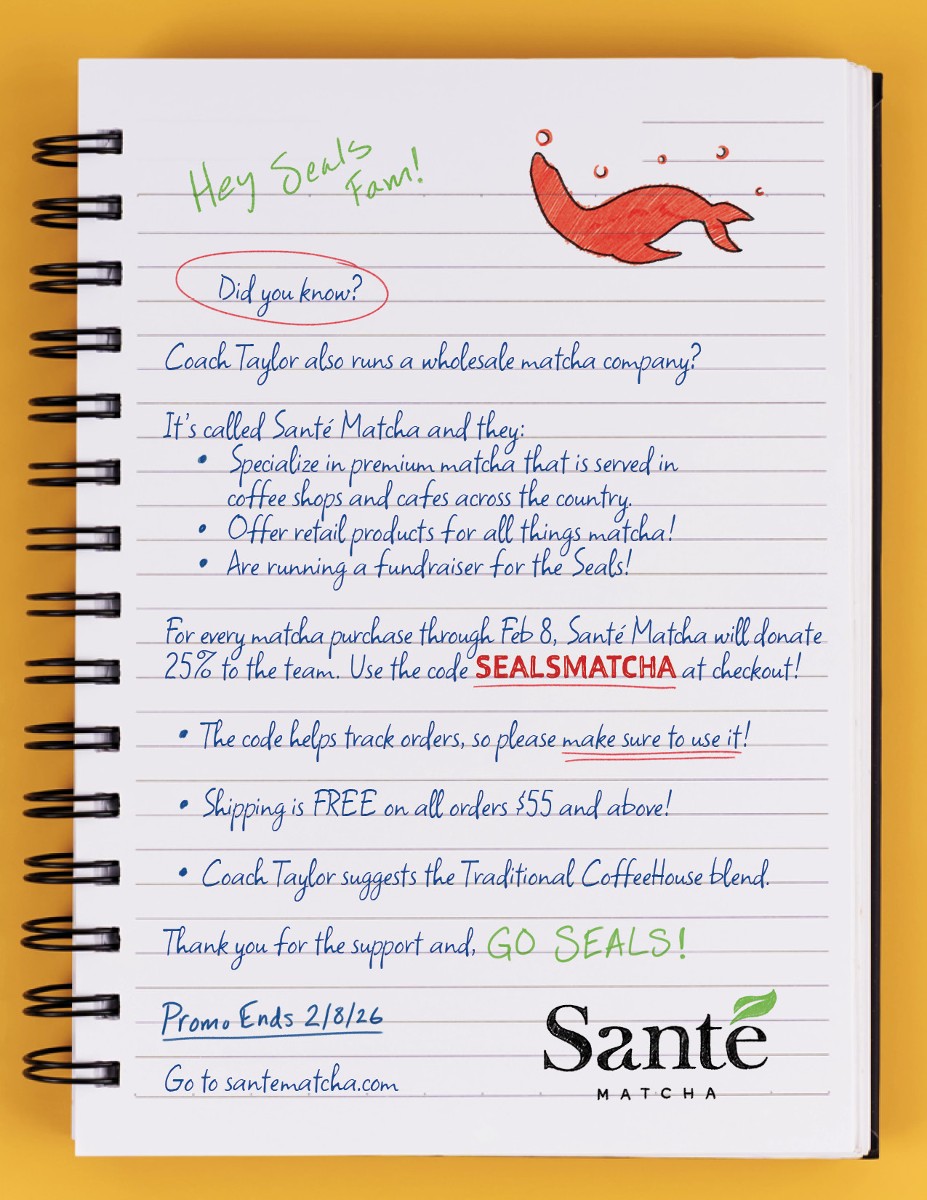 Hey Seals
Fam!
Did you know?
Coach Taylor also runs a wholesale matcha company?
It's called Santé Matcha and they:
• Specialize in premium matcha that is served in
coffee shops and cafes across the country.
• Offer retail products for all things matcha!
• Are running a fundraiser for the Seals!
For every matcha purchase through Feb 8, Santé Matcha will donate
25% to the team. Use the code SEALSMATCHA at checkout!
• The code helps track orders, so please make sure to use it!
• Shipping is FREE on all orders $55 and above!
• Coach Taylor suggests the Traditional CoffeeHouse blend.
Thank you for the support and, GO SEALS!
Promo Ends 2/8/26
Go to santematcha.com
Santé
MATCHA